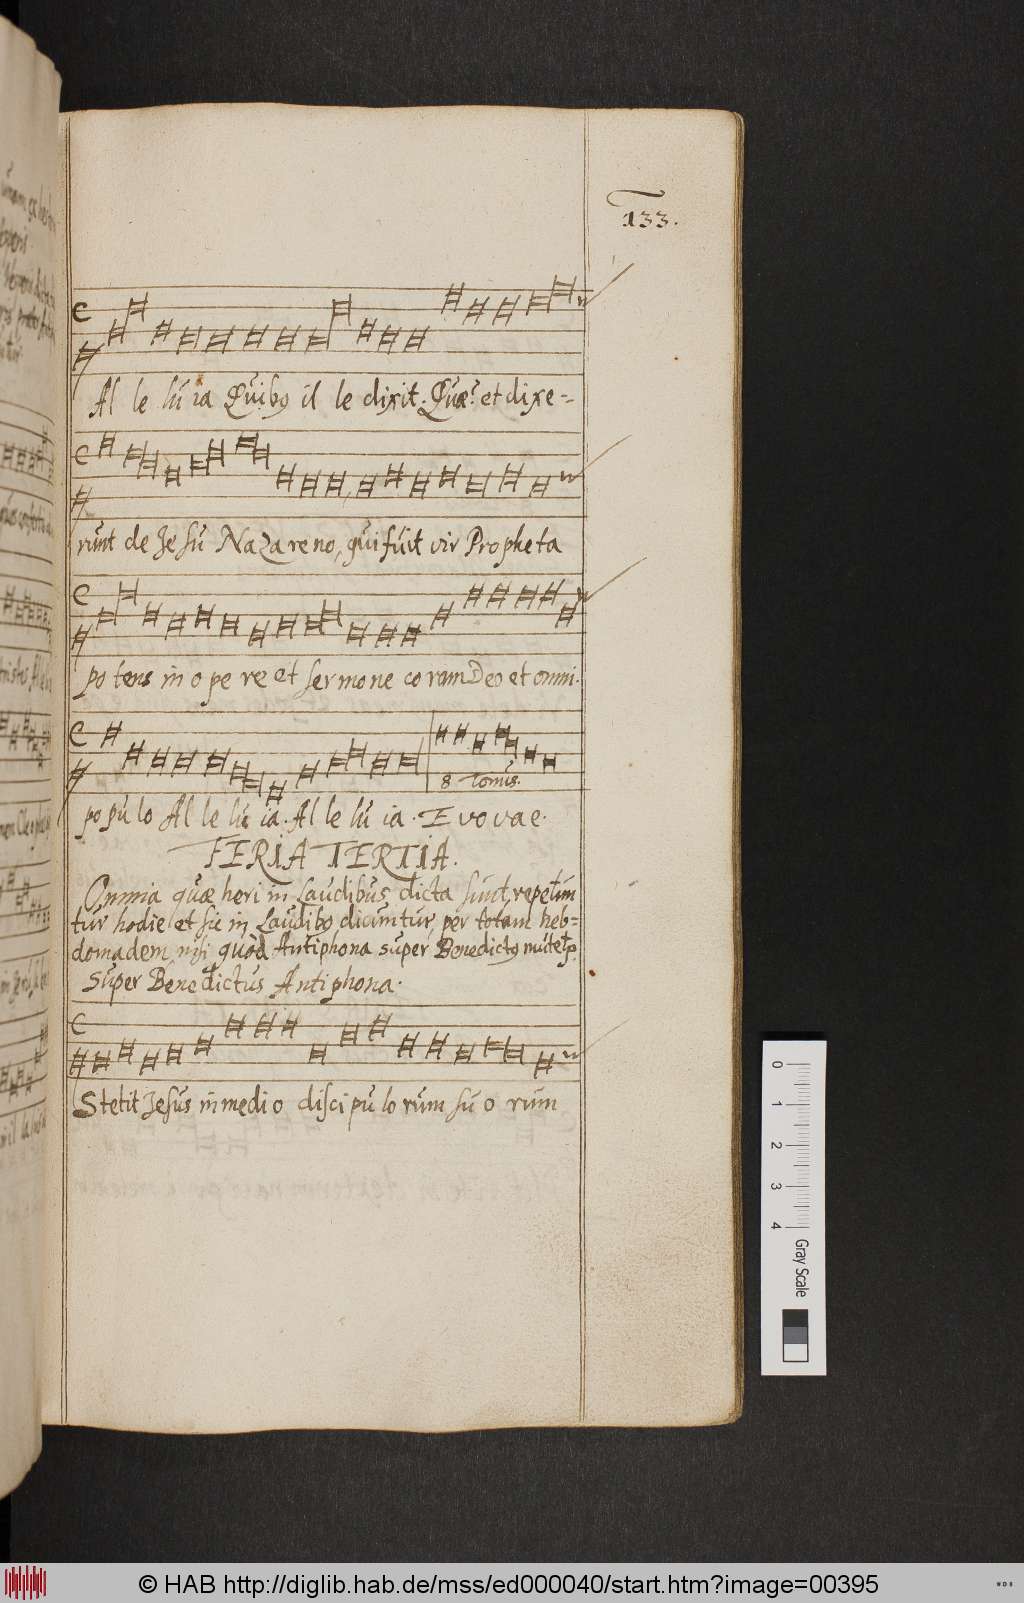 133.
Al le lu ia Quibꝫ il le dixit. Quæ? et dixe-
runt de Je su Nazareno, qui fuit vir Propheta
po tens in o pe re et ser mo ne co ram Deo et omni.
8 Tonus.
po pu lo Al le lu ia. Al le lu ia. E vo vae.
FERIA TERTIA.
Omnia quæ heri in Laudibus dicta sunt, repetun
tur hodie et sic in Laudibꝫ dicuntur, per totam heb-
domadem, nisi quòd Antiphona super Benedictꝫ
super Benedictus Antiphona.
Stetit Jesus in medi o disci pu lo rum su o rum
0 1 2 3 4 Gray Scale
© HAB http://diglib.hab.de/mss/ed000040/start.htm?image=00395